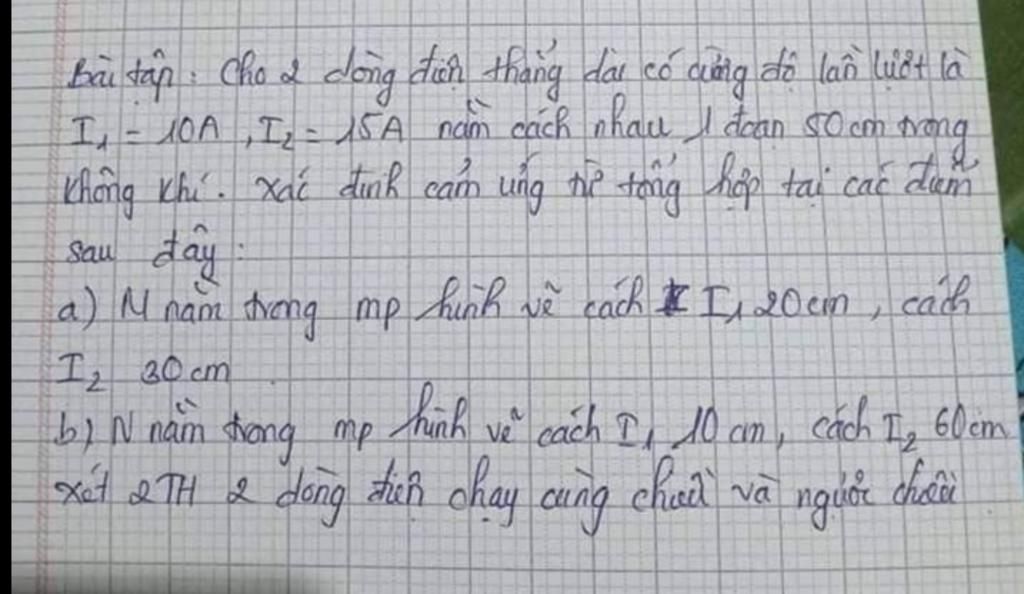 Bài tập: Cho 2 dòng điện thẳng dài có cường độ lần lượt là
I₁ = 10A, I₂ = 15A nằm cách nhau 1 đoạn 50cm trong
không khí. Xác định cảm ứng từ tổng hợp tại các điểm
sau đây:
a) M nằm trong mp hình vẽ cách I₁ 20cm, cách
I₂ 30cm.
b) N nằm trong mp hình vẽ cách I₁ 10cm, cách I₂ 60cm
xét 2TH 2 dòng điện chạy cùng chiều và ngược chiều